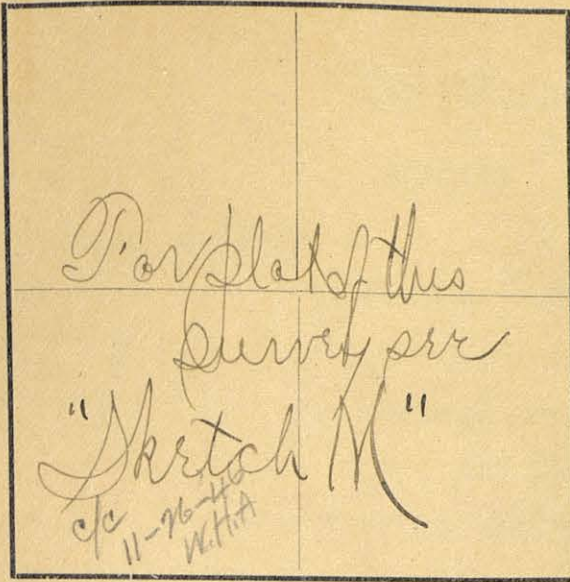 For plat of this
survey see
"Sketch M"
c/c
11-26-46
W.H.A